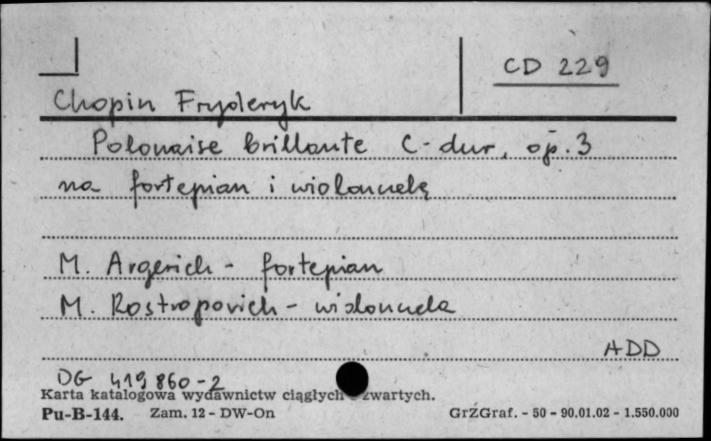 CD 229
Chopin Fryderyk
Polonaise brillante C-dur, op. 3
na fortepian i wiolonczelę
M. Argerich - fortepian
M. Rostropovich - wiolonczela
ADD
DG 419 860-2
Karta katalogowa wydawnictw ciągłych zwartych.
Pu-B-144. Zam. 12 - DW-On GrZGraf. - 50 - 90.01.02 - 1.550.000